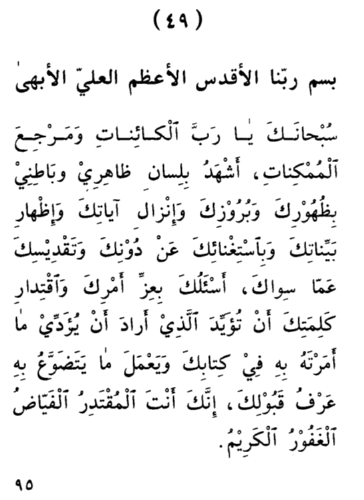 ( ٤٩ )
بسم ربّنا الأقدس الأعظم العليّ الأبهىٰ
سُبْحانَكَ يٰا رَبَّ ٱلْكائِناتِ وَمَرْجِعَ
ٱلْمُمْكِناتِ، أَشْهَدُ بِلِسانِ ظاهِرِيْ وَباطِنِيْ
بِظُهُورِكَ وَبُرُوْزِكَ وَإِنْزالِ آياتِكَ وَإِظْهارِ
بَيِّناتِكَ وَبِٱسْتِغْنائِكَ عَنْ دُوْنِكَ وَتَقْدِيْسِكَ
عَمّا سِواكَ، أَسْئَلُكَ بِعِزِّ أَمْرِكَ وَٱقْتِدارِ
كَلِمَتِكَ أَنْ تُؤَيِّدَ ٱلَّذِيْ أَرادَ أَنْ يُؤَدِّيْ مٰا
أَمَرْتَهُ بِهِ فِيْ كِتابِكَ وَيَعْمَلَ مٰا يَتَضَوَّعُ بِهِ
عَرْفُ قَبُوْلِكَ، إِنَّكَ أَنْتَ ٱلْمُقْتَدِرُ ٱلْفَيّاضُ
ٱلْغَفُوْرُ ٱلْكَرِيْمُ.
٩٥